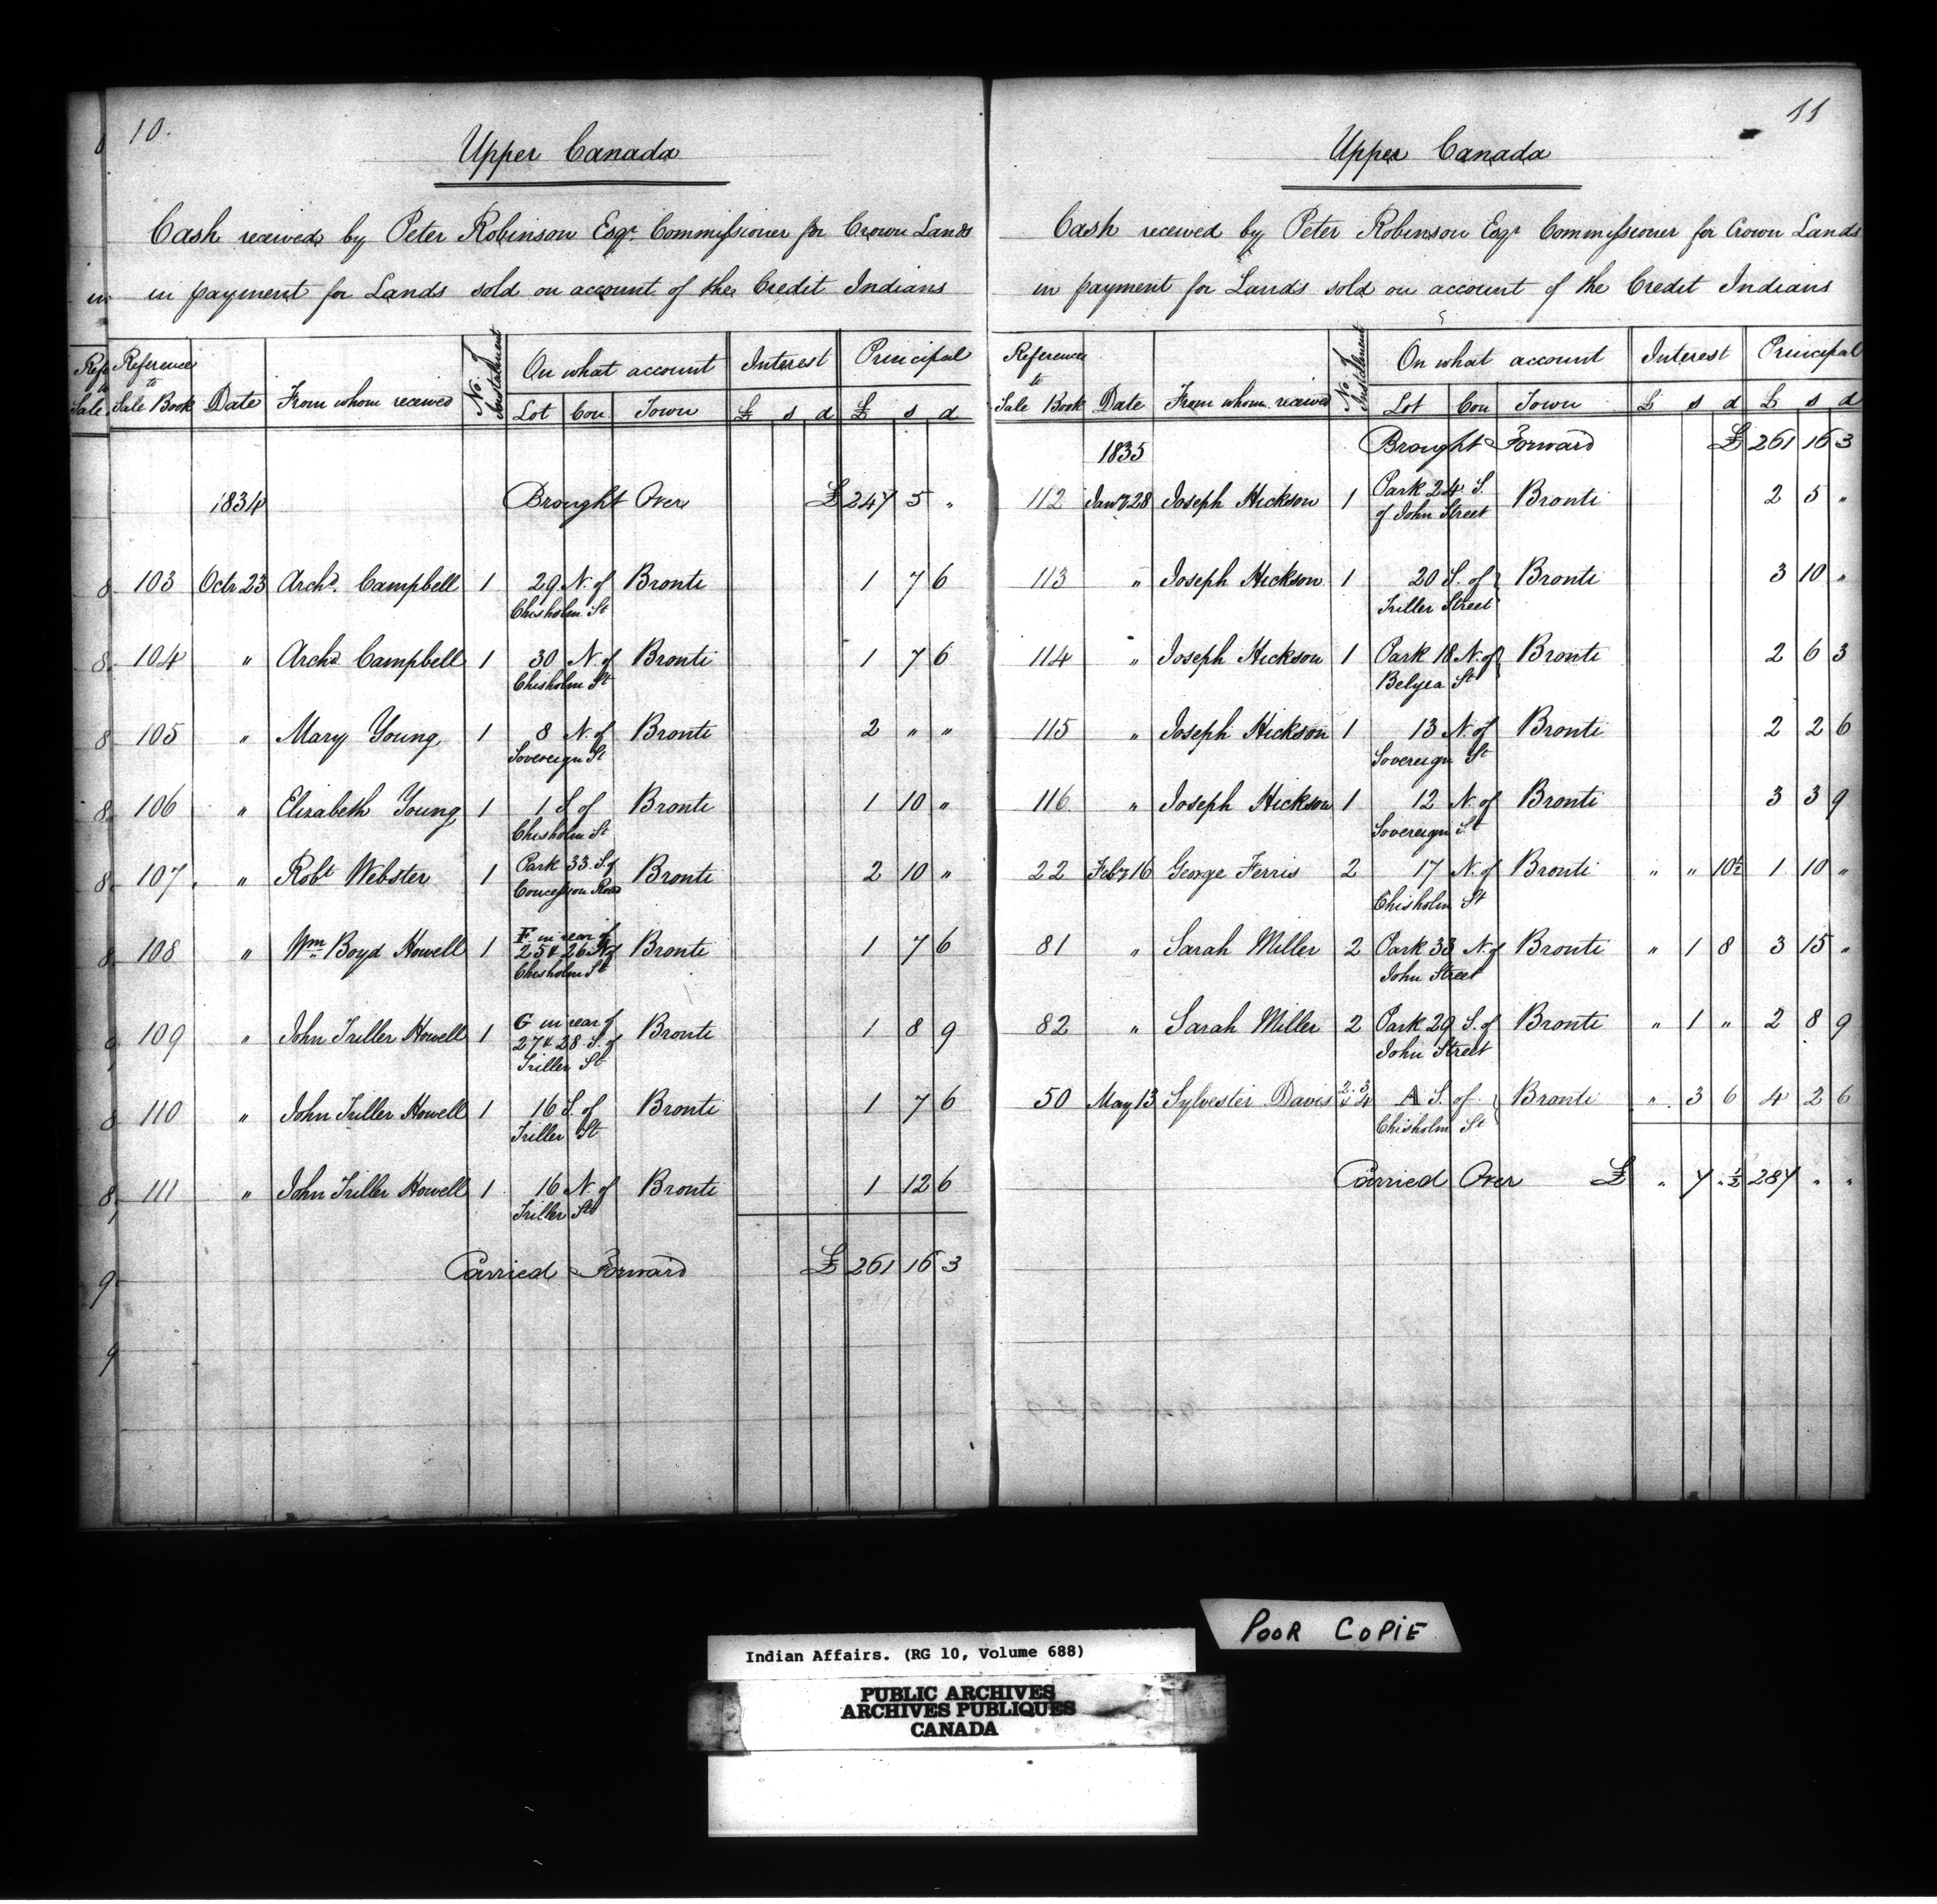 10.
Upper Canada
Cash received by Peter Robinson Esqr. Commissioner for Crown Lands
in payment for Lands sold on account of the Credit Indians
Reference to Sale Book Date From whom received No. of Instalment On what account Interest Principal
Lot Con Town £ s d £ s d
1834 Brought Over £ 247 5 "
103 Octr 23 Archd. Campbell 1 29 N. of Bronti 1 7 6
Chisholm St
104 " Archd Campbell 1 30 N. of Bronti 1 7 6
Chisholm St
105 " Mary Young 1 8 N. of Bronti 2 " "
Sovereign St
106 " Elizabeth Young 1 1 S of Bronti 1 10 "
Chisholm St
107 " Robt Webster 1 Park 33 S. of Bronti 2 10 "
Concession Road
108 " Wm Boyd Howell 1 F in rear of
25 & 26 N. of Bronti 1 7 6
Chisholm St
109 " John Triller Howell 1 G in rear of
27 & 28 S. of Bronti 1 8 9
Triller St
110 " John Triller Howell 1 16 S. of Bronti 1 7 6
Triller St
111 " John Triller Howell 1 16 N. of Bronti 1 12 6
Triller St
Carried Forward £ 261 16 3
11
Upper Canada
Cash received by Peter Robinson Esqr Commissioner for Crown Lands
in payment for Lands sold on account of the Credit Indians
Reference to Sale Book Date From whom received No. of Instalment On what account Interest Principal
Lot Con Town £ s d £ s d
1835 Brought Forward £ 261 16 3
112 Jany 28 Joseph Hickson 1 Park 24 S. Bronti 2 5 "
of John Street
113 " Joseph Hickson 1 20 S. of Bronti 3 10 "
Triller Street
114 " Joseph Hickson 1 Park 18 N. of Bronti 2 6 3
Belyea St
115 " Joseph Hickson 1 13 N. of Bronti 2 2 6
Sovereign St
116 " Joseph Hickson 1 12 N. of Bronti 3 3 9
Sovereign St
22 Feby 16 George Ferris 2 17 N. of Bronti " " 10½ 1 10 "
Chisholm St
81 " Sarah Miller 2 Park 33 N. of Bronti " 1 8 3 15 "
John Street
82 " Sarah Miller 2 Park 29 S. of Bronti " 1 " 2 8 9
John Street
50 May 13 Sylvester Davis 2. 3 & 4 A S. of Bronti " 3 6 4 2 6
Chisholm St
Carried Over £ " 7 " ½ 287 " "
POOR COPIE
Indian Affairs. (RG 10, Volume 688)
PUBLIC ARCHIVES
ARCHIVES PUBLIQUES
CANADA